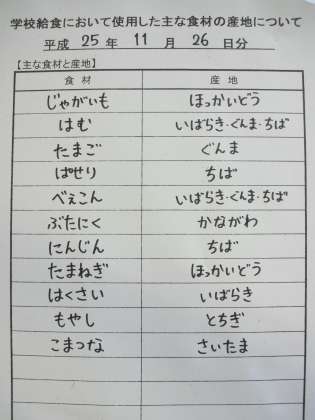 学校給食において使用した主な食材の産地について
平成 25 年 11 月 26 日分
【主な食材と産地】
食材 産地
じゃがいも ほっかいどう
はむ いばらき・ぐんま・ちば
たまご ぐんま
ぱせり ちば
べえこん いばらき・ぐんま・ちば
ぶたにく かながわ
にんじん ちば
たまねぎ ほっかいどう
はくさい いばらき
もやし とちぎ
こまつな さいたま